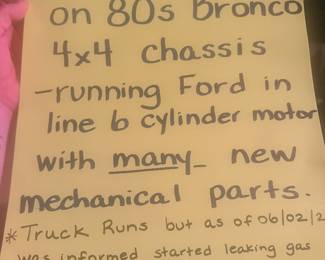 on 80s Bronco
4x4 chassis
-running Ford in
line 6 cylinder motor
with many new
mechanical parts.
*Truck Runs but as of 06/02/2
was informed started leaking gas